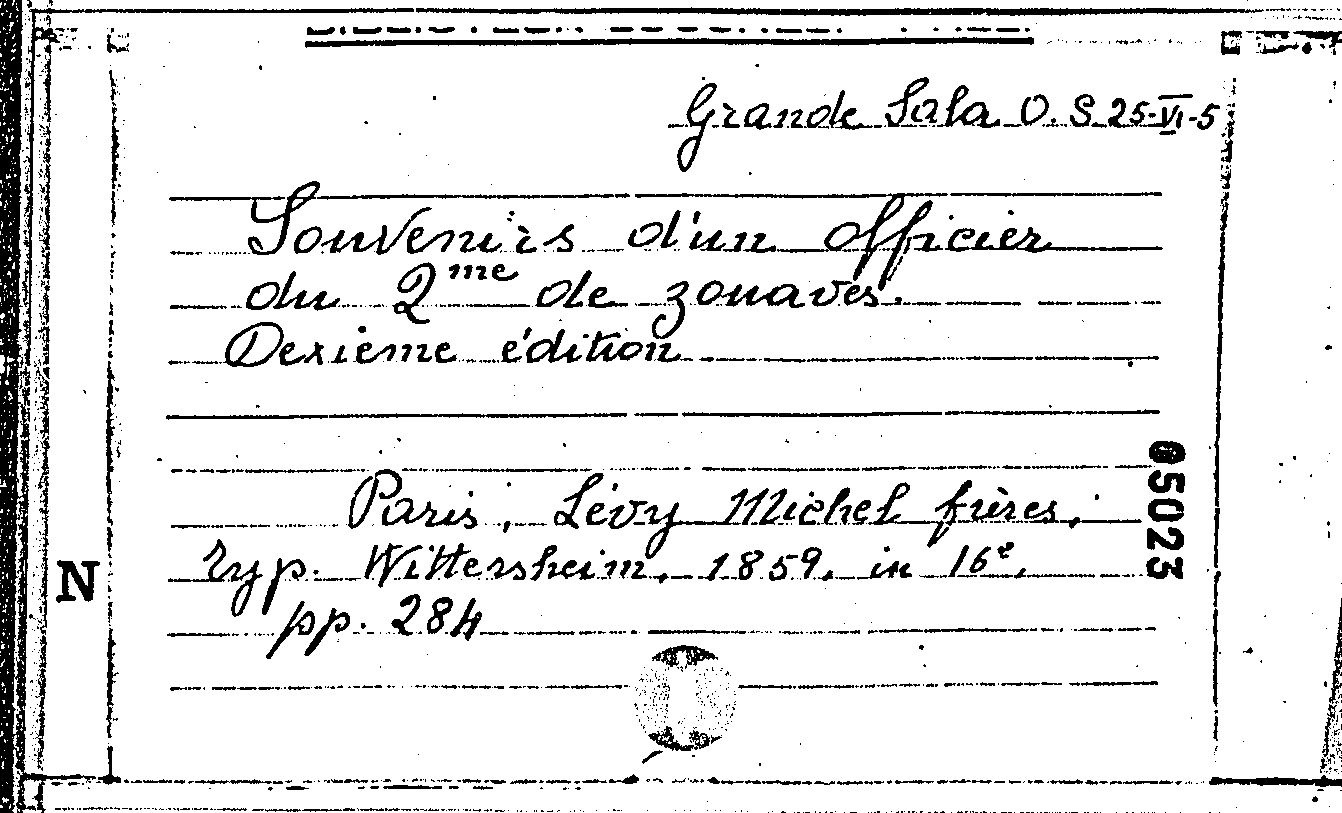 Grande Sala O. S. 25-VI-5
Souvenirs d'un officier
du 2me de zouaves.
Dexieme édition
Paris, Lévy Michel frères,
Typ. Wittersheim, 1859, in 16e,
pp. 284
05023
N